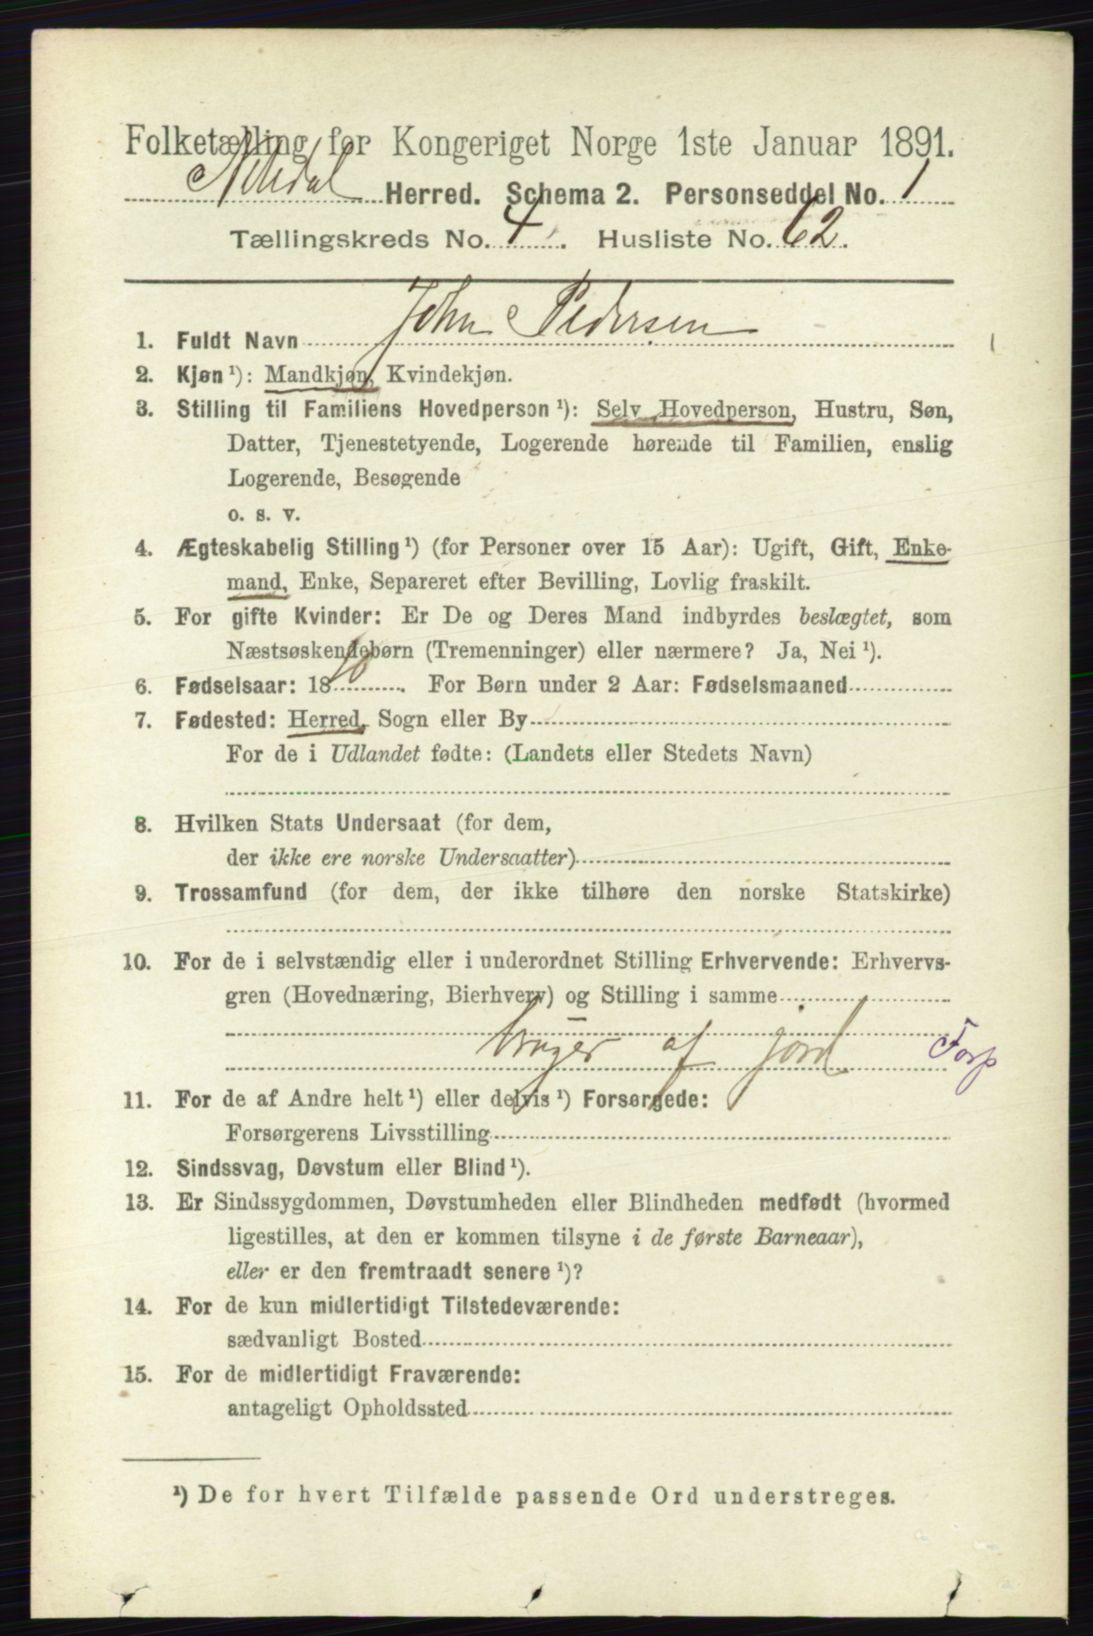 Folketælling for Kongeriget Norge 1ste Januar 1891.
Nitedal Herred. Schema 2. Personseddel No. 1
Tællingskreds No. 4. Husliste No. 62.
1. Fuldt Navn John Pedersen
2. Kjøn ¹): Mandkjøn, Kvindekjøn.
3. Stilling til Familiens Hovedperson ¹): Selv Hovedperson, Hustru, Søn,
Datter, Tjenestetyende, Logerende hørende til Familien, enslig
Logerende, Besøgende
o. s. v.
4. Ægteskabelig Stilling ¹) (for Personer over 15 Aar): Ugift, Gift, Enke-
mand, Enke, Separeret efter Bevilling, Lovlig fraskilt.
5. For gifte Kvinder: Er De og Deres Mand indbyrdes beslægtet, som
Næstsøskendebørn (Tremenninger) eller nærmere? Ja, Nei ¹).
6. Fødselsaar: 1810. For Børn under 2 Aar: Fødselsmaaned
7. Fødested: Herred, Sogn eller By
For de i Udlandet fødte: (Landets eller Stedets Navn)
8. Hvilken Stats Undersaat (for dem,
der ikke ere norske Undersaatter)
9. Trossamfund (for dem, der ikke tilhøre den norske Statskirke)
10. For de i selvstændig eller i underordnet Stilling Erhvervende: Erhvervs-
gren (Hovednæring, Bierhverv) og Stilling i samme
bruger af jord Forp
11. For de af Andre helt ¹) eller delvis ¹) Forsørgede:
Forsørgerens Livsstilling
12. Sindssvag, Døvstum eller Blind ¹).
13. Er Sindssygdommen, Døvstumheden eller Blindheden medfødt (hvormed
ligestilles, at den er kommen tilsyne i de første Barneaar),
eller er den fremtraadt senere ¹)?
14. For de kun midlertidigt Tilstedeværende:
sædvanligt Bosted
15. For de midlertidigt Fraværende:
antageligt Opholdssted
¹) De for hvert Tilfælde passende Ord understreges.